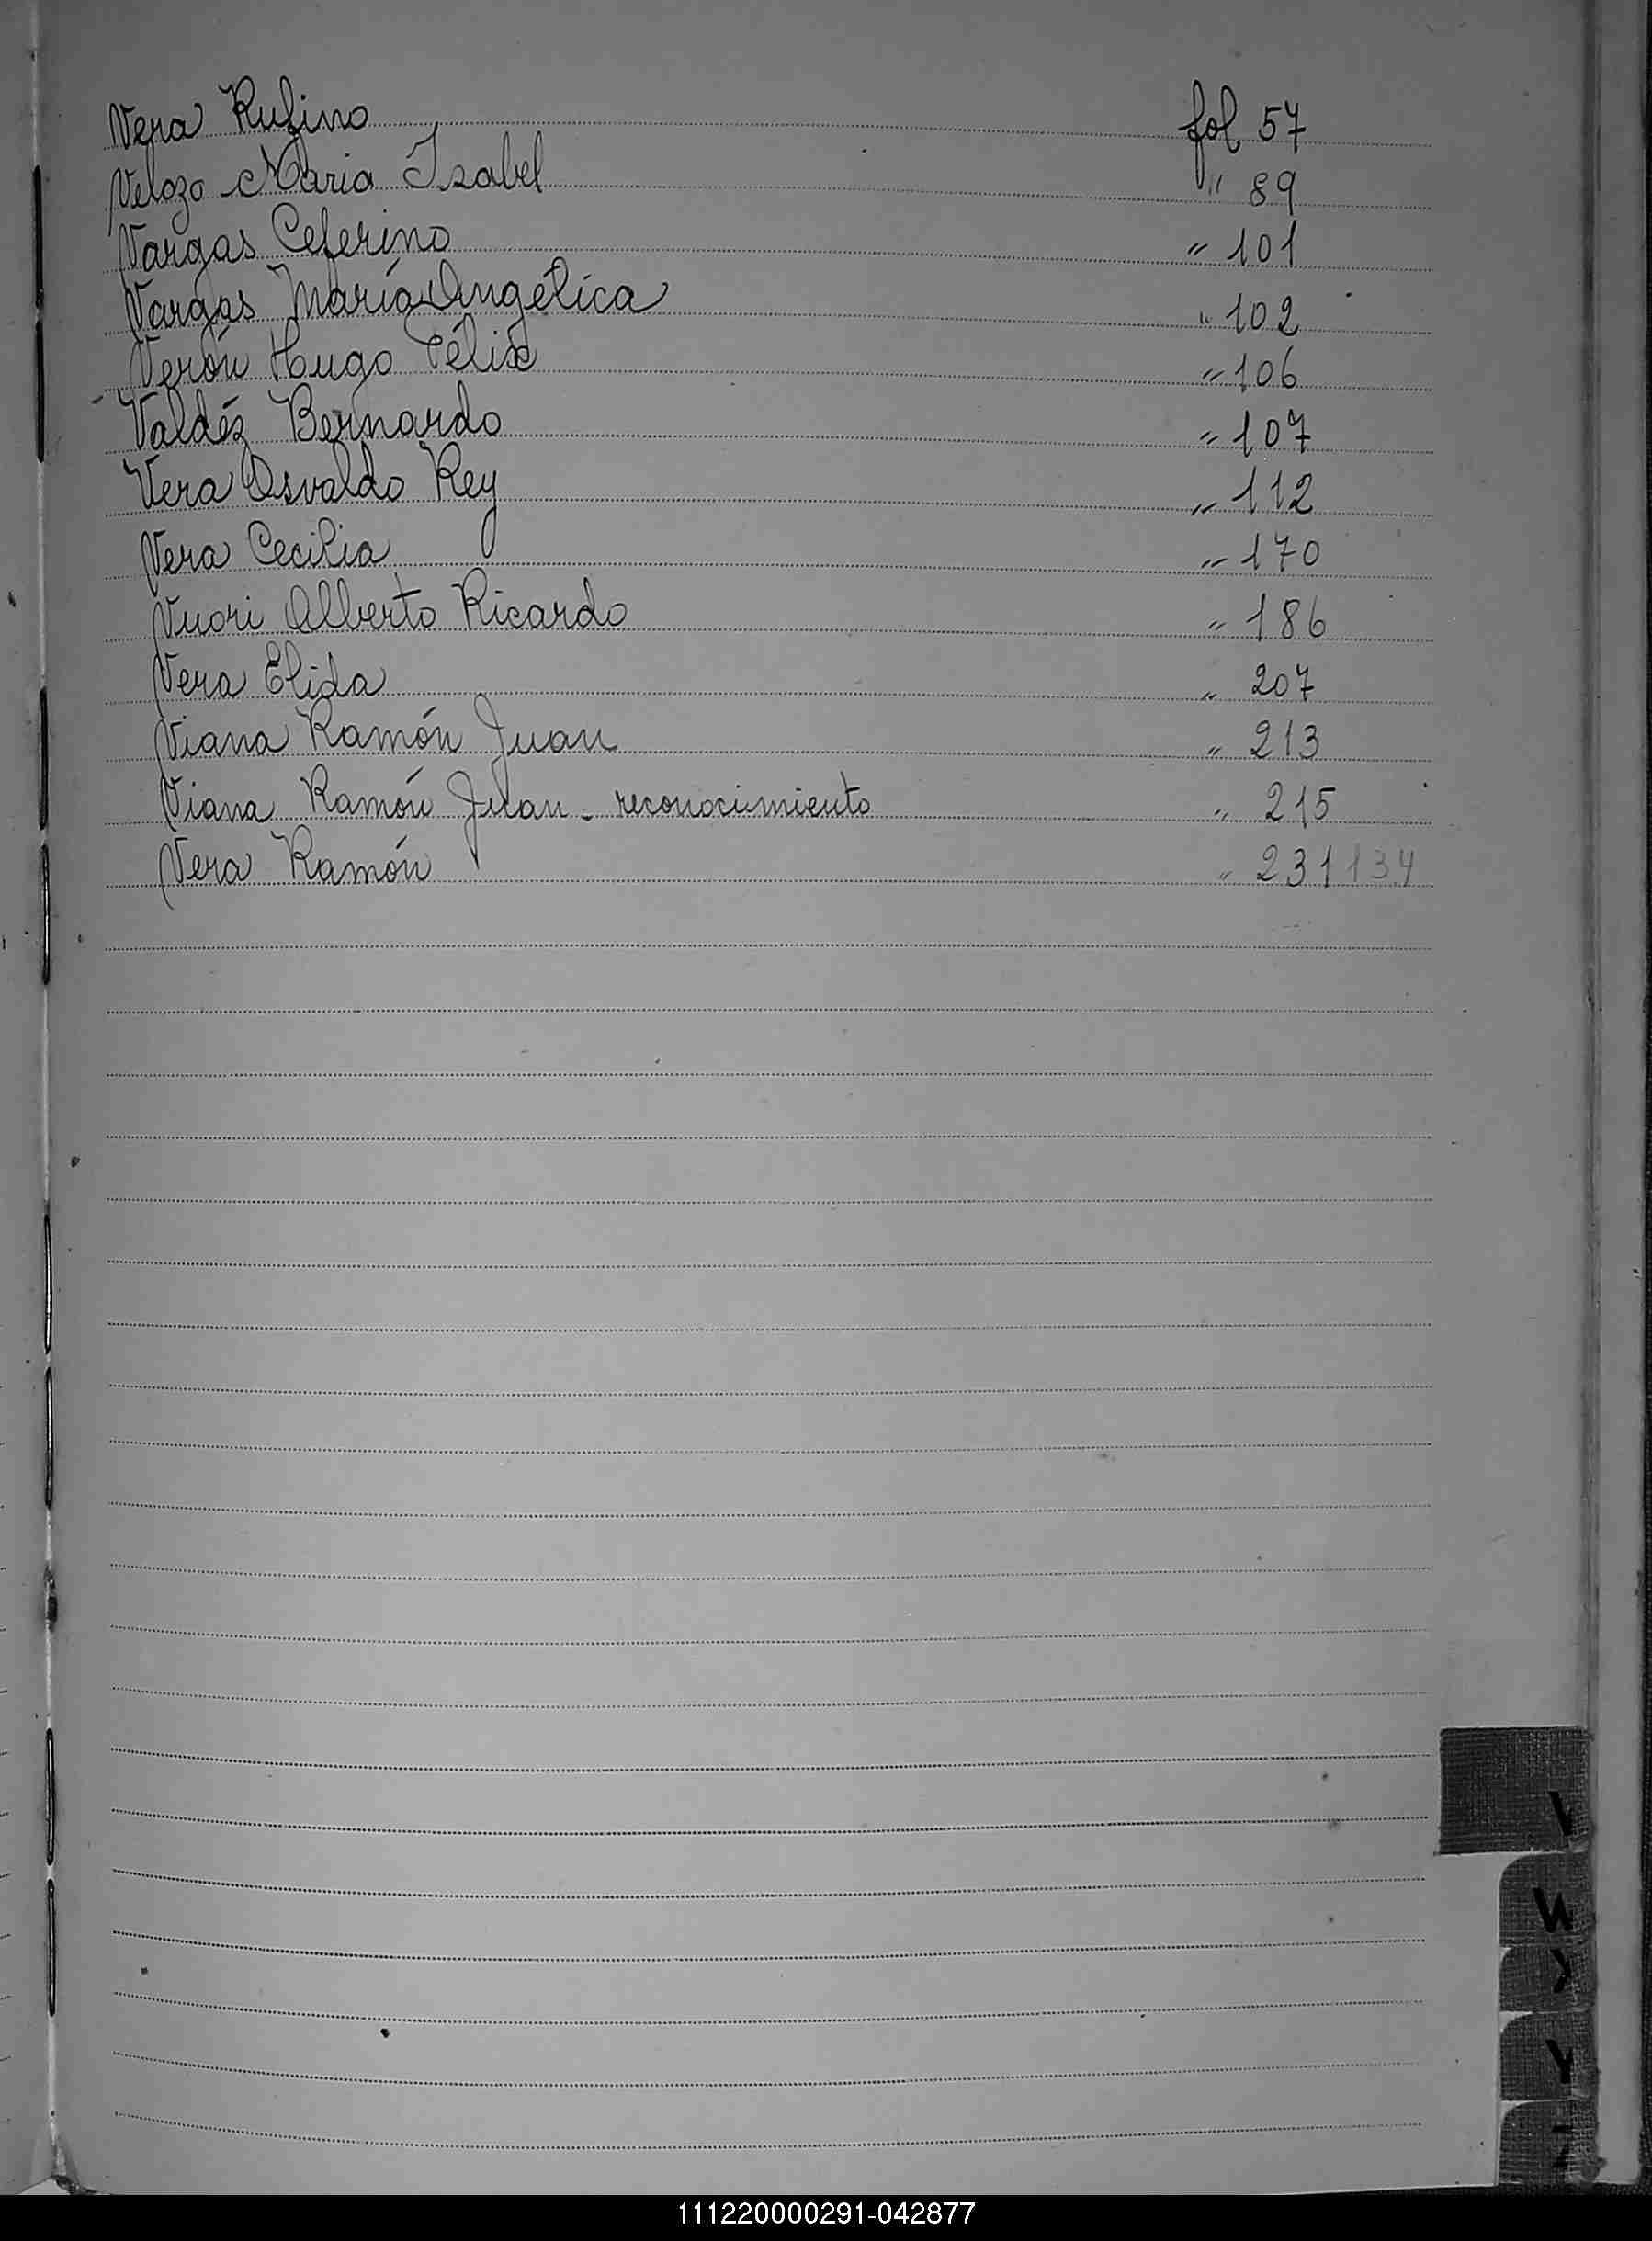 Vera Rufino fol 57
Velozo Maria Isabel " 89
Vargas Ceferino " 101
Vargas María Angélica " 102
Verón Hugo Félix " 106
Valdéz Bernardo " 107
Vera Osvaldo Rey " 112
Vera Cecilia " 170
Vuori Alberto Ricardo " 186
Vera Elida " 207
Viana Ramón Juan " 213
Viana Ramón Juan - reconocimiento " 215
Vera Ramón " 231 134
V
W
X
Y
Z
111220000291-042877